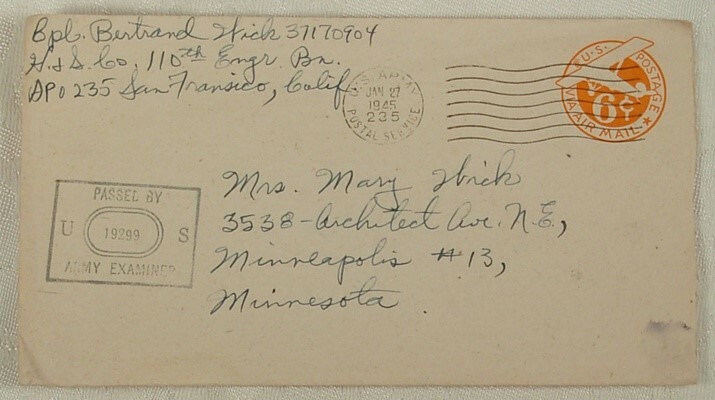 Cpl. Bertrand Wick 37170904
H. & S. Co. 110th Engr. Bn.
APO 235 San Fransico, Calif
U.S. ARMY
JAN 27
1945
235
POSTAL SERVICE
U.S. POSTAGE
6¢
VIA AIR MAIL
PASSED BY
U 19299 S
ARMY EXAMINER
Mrs. Mary Wick
3538-Architect Ave. N.E.,
Minneapolis #13,
Minnesota.